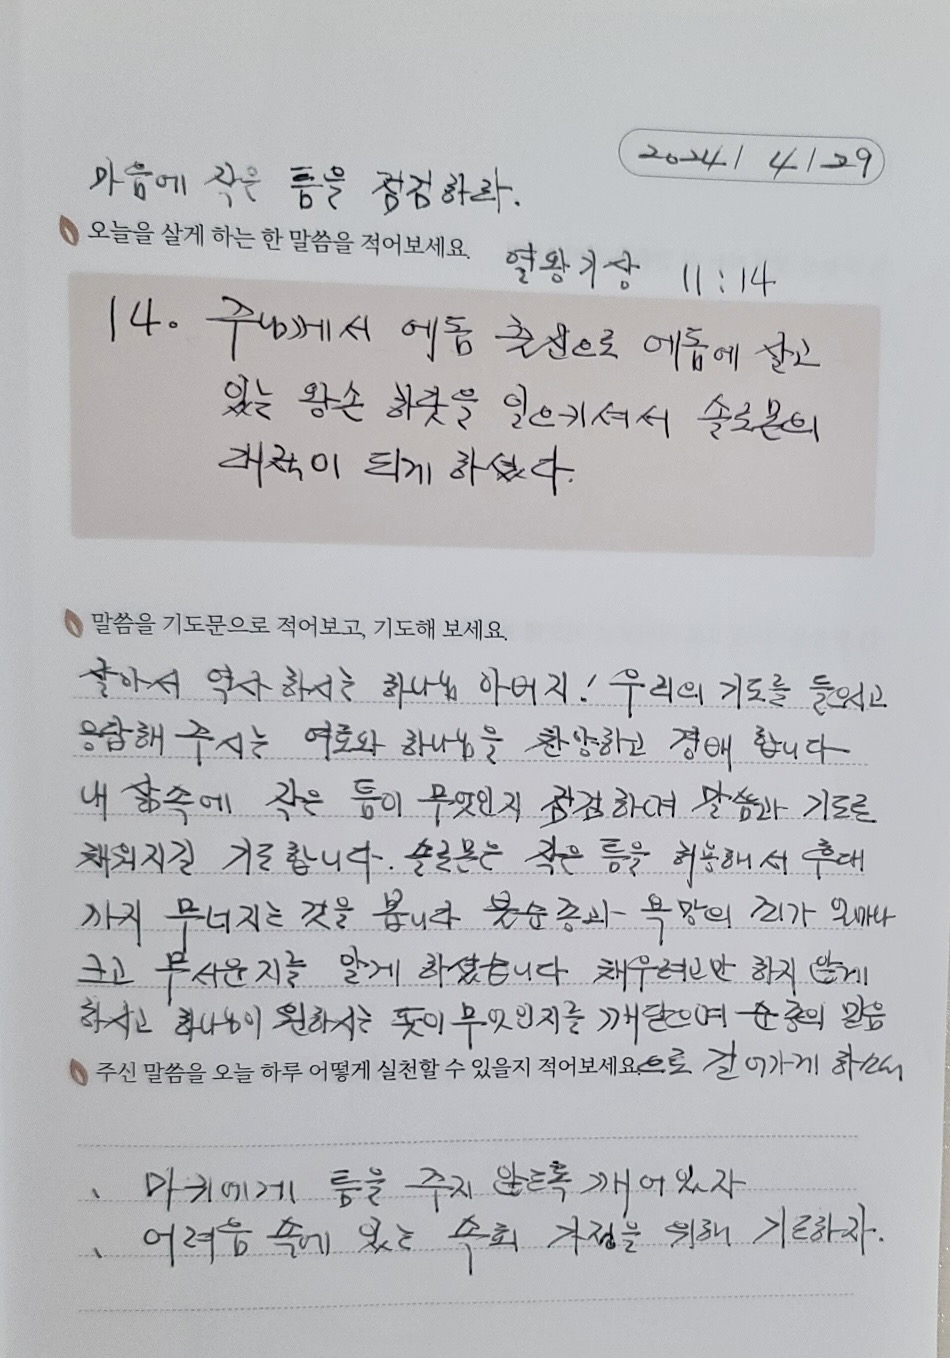 2024 / 4 / 29
마음에 작은 틈을 점검하라.
오늘을 살게 하는 한 말씀을 적어보세요.
열왕기상 11:14
14. 주님께서 에돔 출신으로 에돔에 살고
있는 왕손 하닷을 일으키셔서 솔로몬의
대적이 되게 하셨다.
말씀을 기도문으로 적어보고, 기도해 보세요.
살아서 역사하시는 하나님 아버지! 우리의 기도를 들으시고
응답해 주시는 여호와 하나님을 찬양하고 경배 합니다
내 삶속에 작은 틈이 무엇인지 점검하며 말씀과 기도로
채워지길 기도합니다. 솔로몬은 작은 틈을 허용해서 후대
까지 무너지는 것을 봅니다 불순종과 욕망의 죄가 얼마나
크고 무서운지를 알게 하셨습니다 채우려고만 하지 않게
하시고 하나님이 원하시는 뜻이 무엇인지를 깨달으며 순종의 믿음
으로 걸어가게 하소서
주신 말씀을 오늘 하루 어떻게 실천할 수 있을지 적어보세요.
、 마귀에게 틈을 주지 않토록 깨어있자
、 어려움 속에 있는 속회 가정을 위해 기도하자.